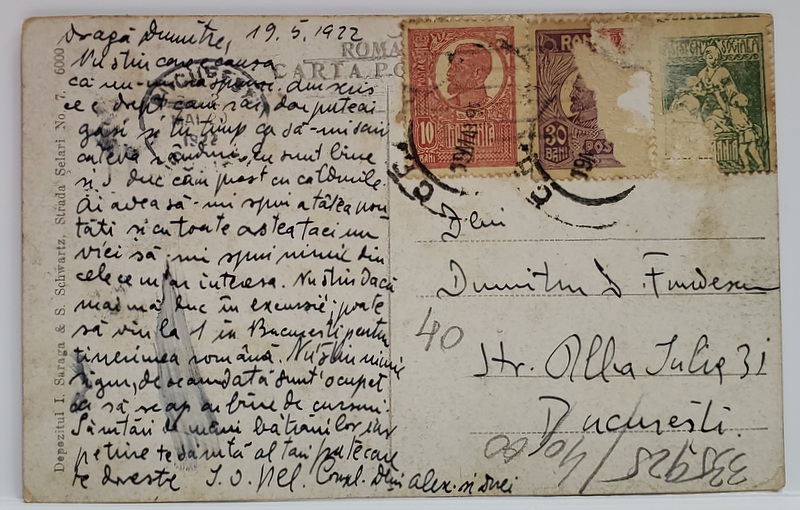 Dragă Dumitre, 19.5.1922
Nu știu care e cauza
că nu-mi răspunzi. Am scris
ce e drept cam rar, dar puteai
găsi și tu timp ca să-mi scrii
câteva rânduri. Eu sunt bine
și o duc cam prost cu
Ai avea să-mi spui atâtea nou
tăți și cu toate astea taci nu
vrei să-mi spui nimic din
cele ce m-ar interesa. Nu știu dacă
mai mă duc în excursie; poate
să vin la 1 în București pentru
tinerimea română. Nu știu nimic
sigur, deocamdată sunt ocupat
ca să scap cu bine de cursuri.
Sărutări de mâni bătrânilor iar
pe tine te sărută al tău prietecare
te dorește I. O. Nel. Compl. Dlui Alex. și Dnei
ROMA
CARTA PO
Depozitul I. Saraga & S. Schwartz, Strada Selari No. 7. 6000
BUCUREȘTI
MAI
1922
10
BANI
ROMANIA
ROM
30
BANI
POS
ASISTENȚA SOCIALA
Dlui
Dumitru D. Fundescu
40
Str. Alba Iulia 31
București.
335928/40.00